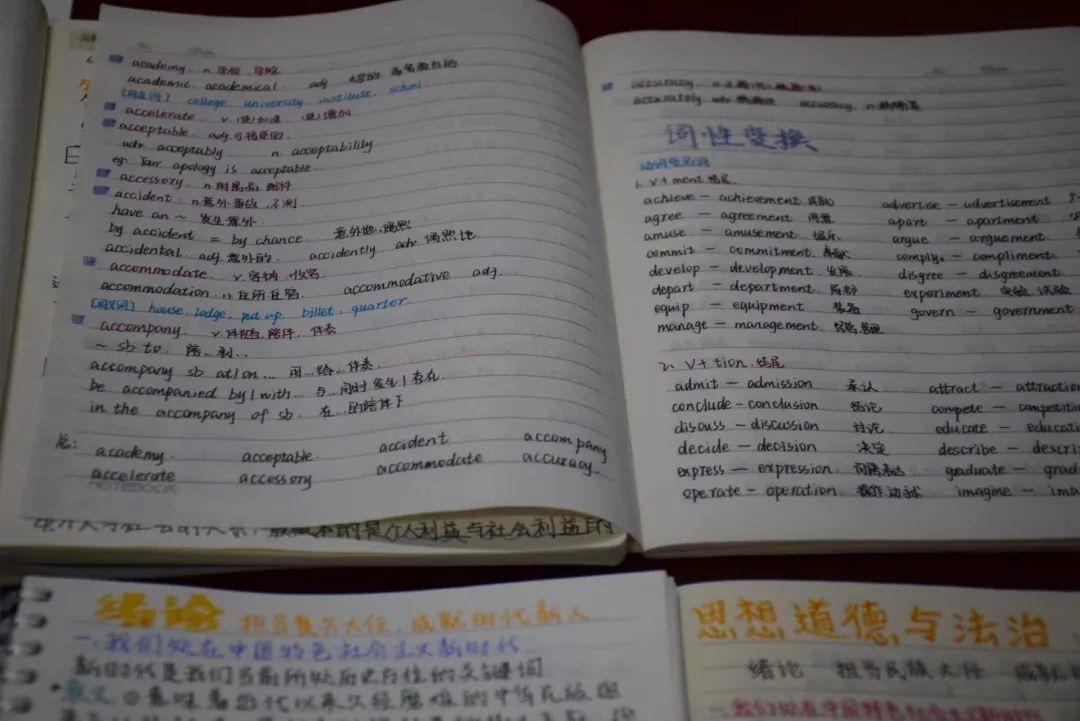 academy. n.学校.学院
academic. academical. adj. 大学的
[同义词] college. university. institute. school.
accelerate. v.(使)加速 (使)增加
acceptable. adj.可接受的.
adv. acceptably n. acceptability
eg. Your apology is acceptable.
accessory. n.附属品.配件
accident. n.意外事故,不测
have an ~ 发生意外.
by accident = by chance. 意外地,偶然
accidental. adj.意外的. accidently adv.偶然地
accommodate. v.容纳.收容
accommodation. n.住所.住宿. accommodative adj.
[同义词] house. lodge. put up. billet. quarter.
accompany. v.陪同.陪伴.伴奏
~ sb to. 陪..到..
accompany sb at/on... 用..给..伴奏.
be accompanied by/with... 与..同时发生/存在.
in the accompany of sb. 在..的陪伴下
总: academy. acceptable. accident accompany
accelerate accessory accommodate accuracy.
NOTEBOOK
是个人利益与社会利益的
accuracy
accurately adv. accuracy. n.
词性变换
动词变名词
1. V+ment.结尾
achieve — achievement. advertise — advertisement
agree — agreement 同意 apart — apartment
amuse — amusement. 娱乐 argue — arguement.
commit — commitment. comply. — compliment.
develop — development.发展 disgree — disgreement.
depart — department. experiment. 实验.试验
equip — equipment 装备 govern — government
manage — management.
2. V+tion.结尾
admit — admission 承认 attract — attraction
conclude — conclusion 结论 compete — competiti
disuss — discussion 讨论 educate — educati
decide — decision 决定 describe — descri
express — expression. graduate — grad
operate — operation. imagine — ima
绪论 担当复兴大任,成就时代新人
一.我们处在中国特色社会主义新时代
新时代是我们当前所处历史方位的关键词
意味着近代以来久经磨难的中华民族迎
思想道德与法治
绪论 担当民族大任
一.我们处在中国特色